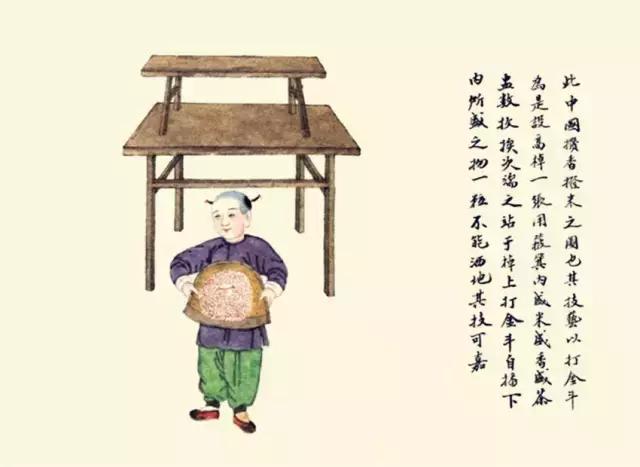 此中國攢香撥米之圖也其技藝以打金斗
為是設高棹一張用簸箕内盛米盛香盛茶
盅数枚挨次端之站于棹上打金斗自下
内所盛之物一粒不能洒地其技可嘉